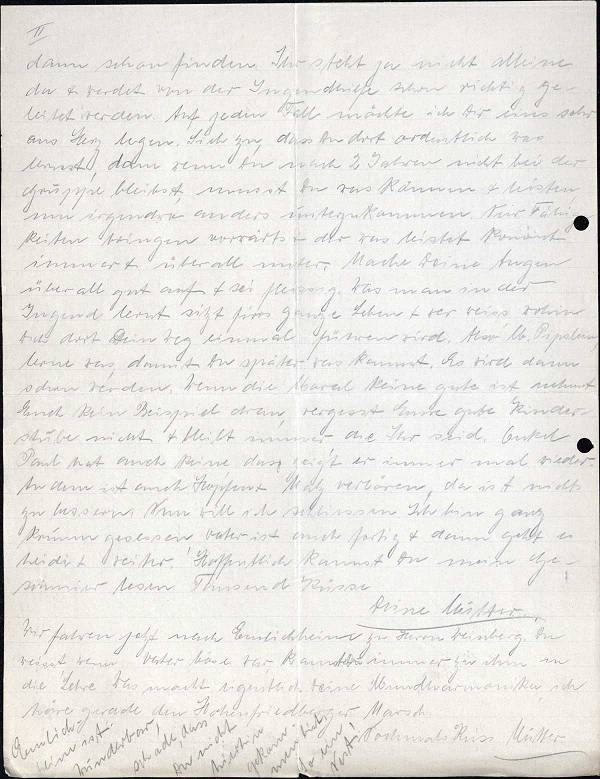 II
dann schon finden. Ihr steht ja nicht alleine
da & werdet von der Jugendhilfe schon richtig ge-
leitet werden. Auf jeden Fall möchte ich Dir eins sehr
ans Herz legen. Sieh zu, dass Du dort ordentlich was
lernst, denn wenn Du nach 2 Jahren nicht bei der
Gruppe bleibst, musst Du was können & leisten
um irgendwo anders unterzukommen. Nur Fähig-
keiten bringen vorwärts & der was leistet kommt
immer & überall unter. Mache Deine Augen
überall gut auf & sei fleissig. Was man in der
Jugend lernt sitzt fürs ganze Leben & wer weiss wohin
Dich dort Dein Weg einmal führen wird. Also lb.
lerne was, damit Du später was kannst. Es wird dann
schon werden. Wenn die Moral keine gute ist nehmt
Euch kein Beispiel dran, vergesst Eure gute Kinder-
stube nicht & bleibt immer die Ihr seid. Onkel
Paul hat auch keine, das zeigt er immer mal wieder.
An dem ist auch Hopfen & Malz verloren, da ist nichts
zu bessern. Nun will ich schliessen. Ich bin ganz
krumm gesessen. Vater ist auch fertig & dann geht es
heidi & weiter. Hoffentlich kannst Du mein Ge-
schmier lesen. Tausend Küsse
Deine Mutter.
Wir fahren jetzt nach Emlichheim zu Herrn Weinberg. Du
weisst wenn Vater böse war, kannst immer zu ihm in
die Lehre. Was macht eigentlich Deine Mundharmonika, ich
höre gerade den Hohenfriedberger Marsch.
Nochmals Kuss Mutter
Emlich-
heim ist
wunderbar,
schade, dass
Du nicht
gekom-
men